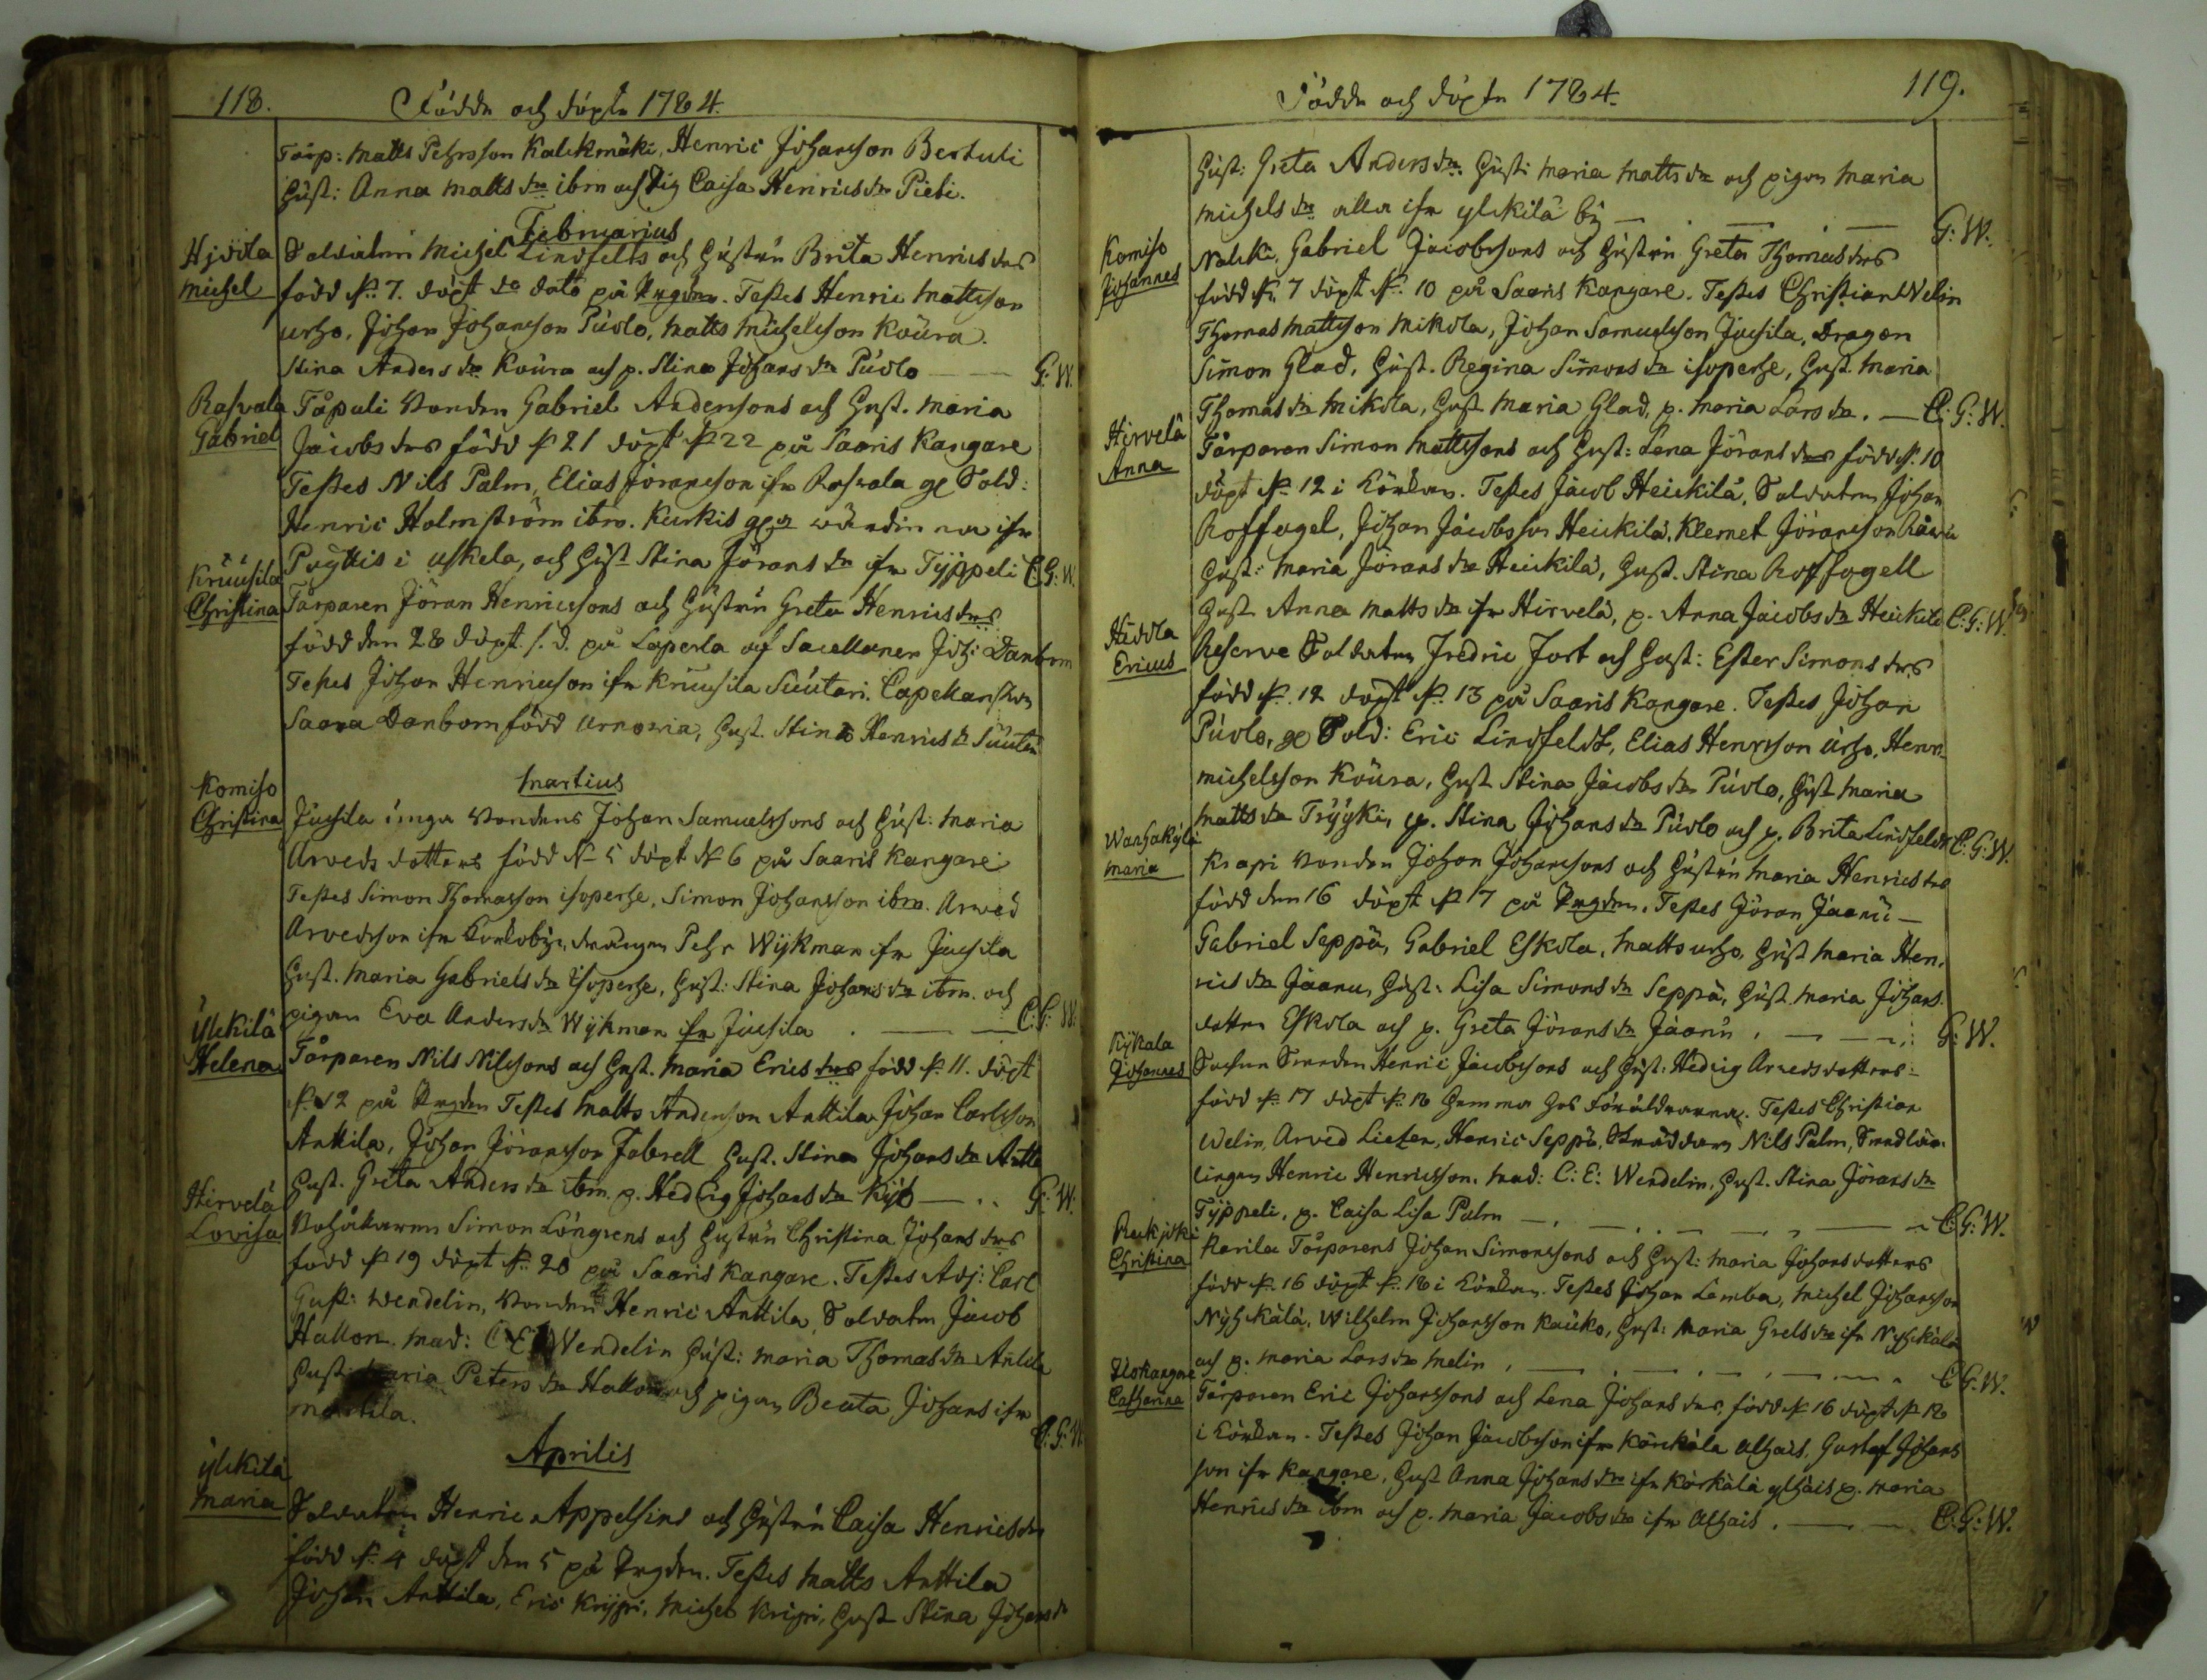 118.
Födde och döpte 1784.
Torp: Matts Pehrsson Kalckmäki, Henric Johansson Bertuli
Hust: Anna Matts dr ibm och pig Caisa Henrics dr Pieti.
Februarius
Hjdola
Michel
Soldaten Michel Lindfelts och Hustrun Brita Henrics drs
född d. 7. döpt do dato på Prgdn. Testes Henric Mattsson
Urho, Johan Johansson Púolo, Matts Michelsson Koura.
Stina Anders dr Koura och p. Stina Johans dr Púolo — G: W.
Rasvala
Gabriel
Tåpali Bonden Gabriel Anderssons och Hust. Maria
Jacobs drs född d 21 döpt d 22 på Saaris Kangare
Testes Nils Palm, Elias Jöransson ifr Rasvala gl Sold:
Henric Holmström ibm. Kurkis
i Uskela, och Hust Stina Jörans dr ifr Typpeli C: G: W.
Kruusila
Christina
Torparen Jöran Henricssons och Hustrun Greta Henrics drs
född den 28 döpt s. d. på Laperla af Sacellanen Joh: Danbom
Testes Johan Henricsson ifr Kruusila Suutari. Capellans fru
Saara Danbom född Arnoria, Hust. Stina Henrics dr Suutari
Martius
Komiso
Christina
Juusila unga Bondens Johan Samuelssons och Hust: Maria
Arveds dotters född d 5 döpt d 6 på Saaris Kangare
Testes Simon Thomasson isoperhe, Simon Johansson ibm. Arved
Arvedsson ifr drängen Pehr Wijkman ifr Juusila
Hust. Maria Gabriels dr isoperhe, Hust: Stina Johans dr ibm. och
pigan Eva Anders dr Wijkman ifr Juusila . — C: G: W.
Ylckilä
Helena
Torparen Nils Nilssons och Hust. Maria Erics drs född d. 11. döpt
d. 12 på Prgdn Testes Matts Andersson Anttila Johan Carlsson
Anttila, Johan Jöransson Fabrell Hust. Stina Johans dr Antti
Hust. Greta Anders dr ibm. p. Hedvig Johans dr Kijð — G: W.
Hirvelä
Lovisa
Simon Löngrens och Hustrun Christina Johans drs
född d 19 döpt d. 20 på Saaris Kangare. Testes Adj: Carl
Gust: Wendelin, Bonden Henric Anttila, Soldaten Jacob
Hallon. Mad: C: E: Wendelin Hust: Maria Thomas dr Anttila
Hust: Maria Peters dr Hallon och pigan Beata Johans ifr
Marttila. C: G: W.
Aprilis
Ylckilä
Maria
Soldaten Henric Appelsins och Hustrun Caisa Henrics drs
född d. 4 döpt den 5 på Prgdn. Testes Matts Anttila
Johan Anttila, Eric Krijpi, Michel Kripi, Hust Stina Johans dr
Födde och döpte 1784.
119.
Hust: Greta Anders dr. Hust: Maria Matts dr och pigan Maria
Michels dr alla ifr Ylckilä by — G: W.
Komiso
Johannes
Nalcki, Gabriel Jacobssons och Hustrun Greta Thomas drs
född d. 7 döpt d. 10 på Saaris Kangare. Testes Christian Welin
Thomas Mattsson Mikola, Johan Samuelsson Juusila, Dragon
Simon Glad, Hust. Regina Simons dr isoperhe, Hust. Maria
Thomas dr Mikola, Hust Maria Glad, p. Maria Lars dr. — C: G: W.
Hirvelä
Anna
Torparen Simon Mattssons och Hust: Lena Jörans drs född d. 10
döpt d. 12 i Kÿrkan. Testes Jacob Heickilä, Soldaten Johan
Roffogel, Johan Jacobsson Heickilä, Klemet Jöransson
Hust: Maria Jörans dr Heickilä, Hust. Stina Roffogell
Hust Anna Matts dr ifr Hirvelä, p. Anna Jacobs dr Heickilä C: G: W.
Hidola
Ericus
Reserve Soldaten Fredric Fort och Hust: Ester Simons drs
född d. 12 döpt d. 13 på Saaris Kangare. Testes Johan
Púolo, gl Sold: Eric Lindfeldt, Elias Henrsson Urho, Henr.
Michelsson Koura, Hust Stina Jacobs dr Púolo, Hust Maria
Matts dr Tryyki, p. Stina Johans dr Púolo och p. Brita Lindfeldt C: G: W.
Wanhakylä
Maria
Krapi Bonden Johan Johanssons och Hustrun Maria Henrics drs
född den 16 döpt d 17 på Prgdn. Testes Jöran Jaanu —
Gabriel Seppä, Gabriel Eskola, Matts Urho, Hust Maria Hen-
rics dr Jaanu, Hust: Lisa Simons dr Seppä, Hust Maria Johans
dotter Eskola och p. Greta Jörans dr Jaanu . — G: W.
Kijkala
Johannes
Socknesmeden Henric Jacobssons och Hust: Hedvig Arveds dotters
född d. 17 döpt d. 18 hemma hos Föräldrarna. Testes Christian
Welin, Arved Lieten, Henric Seppä, Skräddaren Nils Palm, Smedlär-
lingen Henric Henricsson. Mad: C: E: Wendelin, Hust. Stina Jörans dr
Typpeli, p. Caisa Lisa Palm — C: G: W.
Reckijoki
Christina
Karila Torparens Johan Simonssons och Hust: Maria Johans dotters
född d. 16 döpt d. 18 i Kÿrkan. Testes Johan Lamba, Michel Johansson
Nyhckälä, Wilhelm Johansson Kaucko, Hust: Maria Grels dr ifr Nyhckälä
och p. Maria Lars dr Melin . — C: G: W.
Uskangare
Catharina
Torparen Eric Johanssons och Lena Johans drs, född d 16 döpt d 18
i Kÿrkan. Testes Johan Jacobsson ifr Körckälä Alhais, Gustaf Johans
son ifr Kangare, Hust Anna Johans dr ifr Körkälä ylhäis p. Maria
Henrics dr ibm och p. Maria Jacobs dr ifr Alhais . — C: G: W.